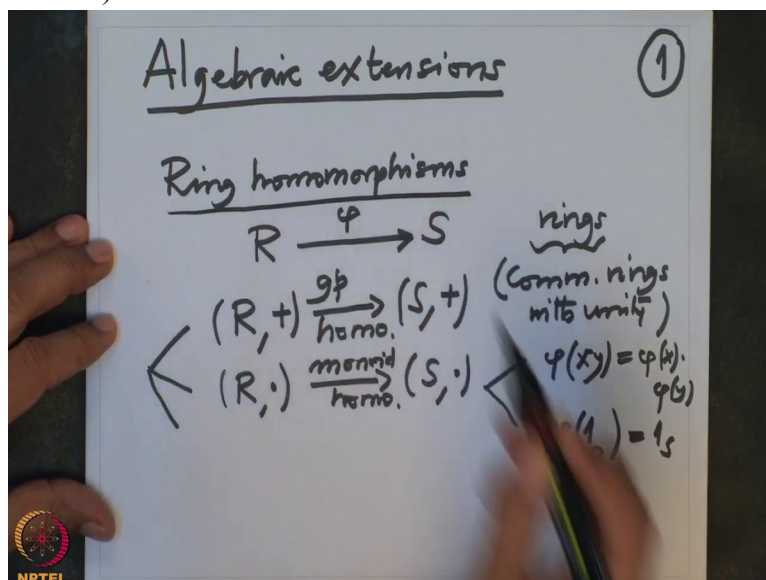 Algebraic extensions
①
Ring homomorphisms
R —φ→ S
rings
(Comm. rings
with unity)
(R, +) gp homo. → (S, +)
(R, ·) monoid homo. → (S, ·)
φ(xy) = φ(x) ·
φ(y)
) = 1_S
NPTEL